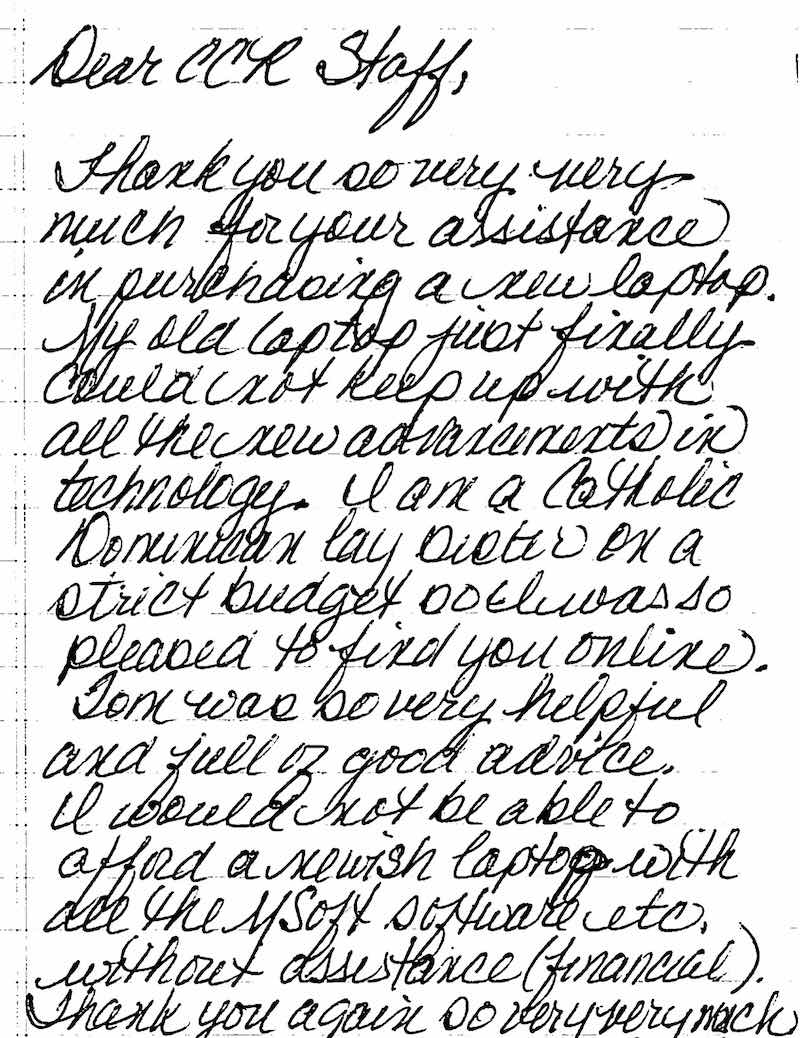 Dear CCR Staff,
Thank you so very very
much for your assistance
in purchasing a new laptop.
My old laptop just finally
could not keep up with
all the new advancements in
technology. I am a Catholic
Dominican lay sister on a
strict budget so I was so
pleased to find you online.
Tom was so very helpful
and full of good advice.
I would not be able to
afford a newish laptop with
all the MSoft software etc.
without assistance (financial).
Thank you again so very very much